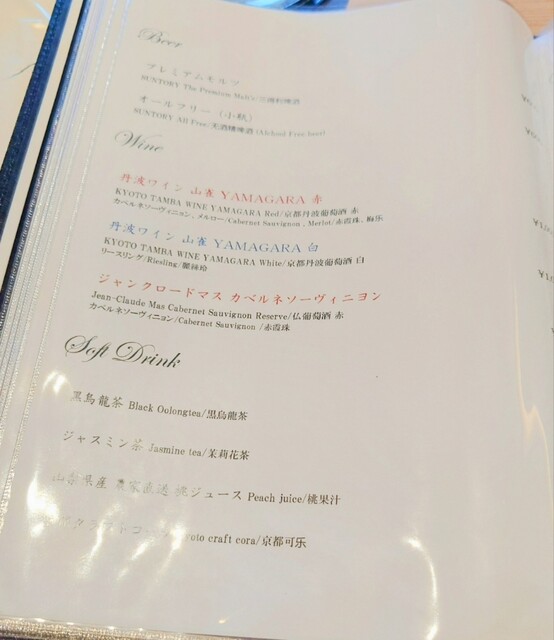 Beer
プレミアムモルツ
SUNTORY The Premium Malt's/三得利啤酒
オールフリー（小瓶）
SUNTORY All Free/无酒精啤酒 (Alchool Free beer)
Wine
丹波ワイン 山雀 YAMAGARA 赤
KYOTO TAMBA WINE YAMAGARA Red/京都丹波葡萄酒 赤
カベルネソーヴィニヨン, メルロー/Cabernet Sauvignon , Merlot/赤霞珠, 梅乐
丹波ワイン 山雀 YAMAGARA 白
KYOTO TAMBA WINE YAMAGARA White/京都丹波葡萄酒 白
リースリング/Riesling/麗絲玲
ジャンクロードマス カベルネソーヴィニヨン
Jean-Claude Mas Cabernet Sauvignon Reserve/仏葡萄酒 赤
カベルネソーヴィニョン/Cabernet Sauvignon /赤霞珠
Soft Drink
黒烏龍茶 Black Oolongtea/黒烏龍茶
ジャスミン茶 Jasmine tea/茉莉花茶
山梨県産 農家直送 桃ジュース Peach juice/桃果汁
クラフトコーラ Kyoto craft cora/京都可乐